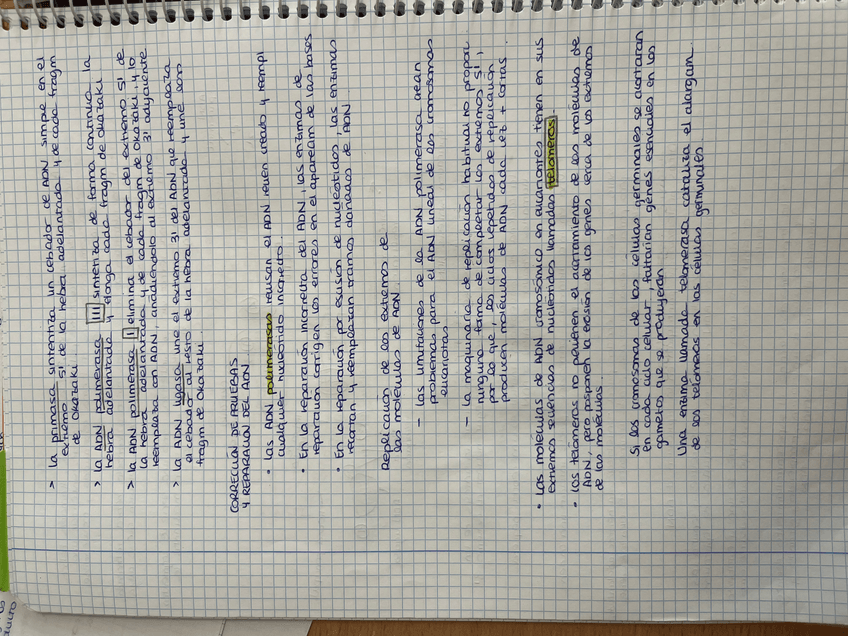 > la primasa sintetiza un cebador de ADN simple en el
extremo 5' de la hebra adelantada y de cada fragm
de Okazaki.
> la ADN polimerasa III sintetiza de forma continua la
hebra adelantada y elonga cada fragm de Okazaki
> la ADN polimerasa I elimina el cebador del extremo 5' de
la hebra adelantada y de cada fragm de Okazaki, y lo
reemplaza con ADN, añadiendolo al extremo 3' adyacente
> la ADN ligasa une el extremo 3' del ADN que reemplaza
el cebador al resto de la hebra adelantada y une los
fragm de Okazaki.
CORRECCIÓN DE PRUEBAS
Y REPARACIÓN DEL ADN
• Las ADN polimerasas revisan el ADN recien creado y reempl
cualquier nucleotido incorrecto.
• En la reparación incorrecta del ADN, las enzimas de
reparación corrigen los errores en el apaream de las bases
• En la reparación por escisión de nucleótidos, las enzimas
recortan y reemplazan tramos dañados de ADN
Replicación de los extremos de
las moléculas de ADN.
- Las limitaciones de la ADN polimerasa crean
problemas para el ADN lineal de los cromosomas
eucariotas.
- La maquinaria de replicación habitual no propor.
ninguna forma de completar los extremos 5',
por lo que, los ciclos repetidos de replicación
producen moléculas de ADN cada vez + cortas.
• Las moléculas de ADN cromosómico en eucariontes tienen en sus
extremos secuencias de nucleótidos llamadas telómeros.
• Los telómeros no previenen el acortamiento de las moléculas de
ADN, pero posponen la erosión de los genes cerca de los extremos
de las moléculas.
Si los cromosomas de las células germinales se acortaran
en cada ciclo celular, faltarían genes esenciales en los
gametos que se producirán
Una enzima llamada telomerasa cataliza el alargam.
de los telómeros en las células germinales